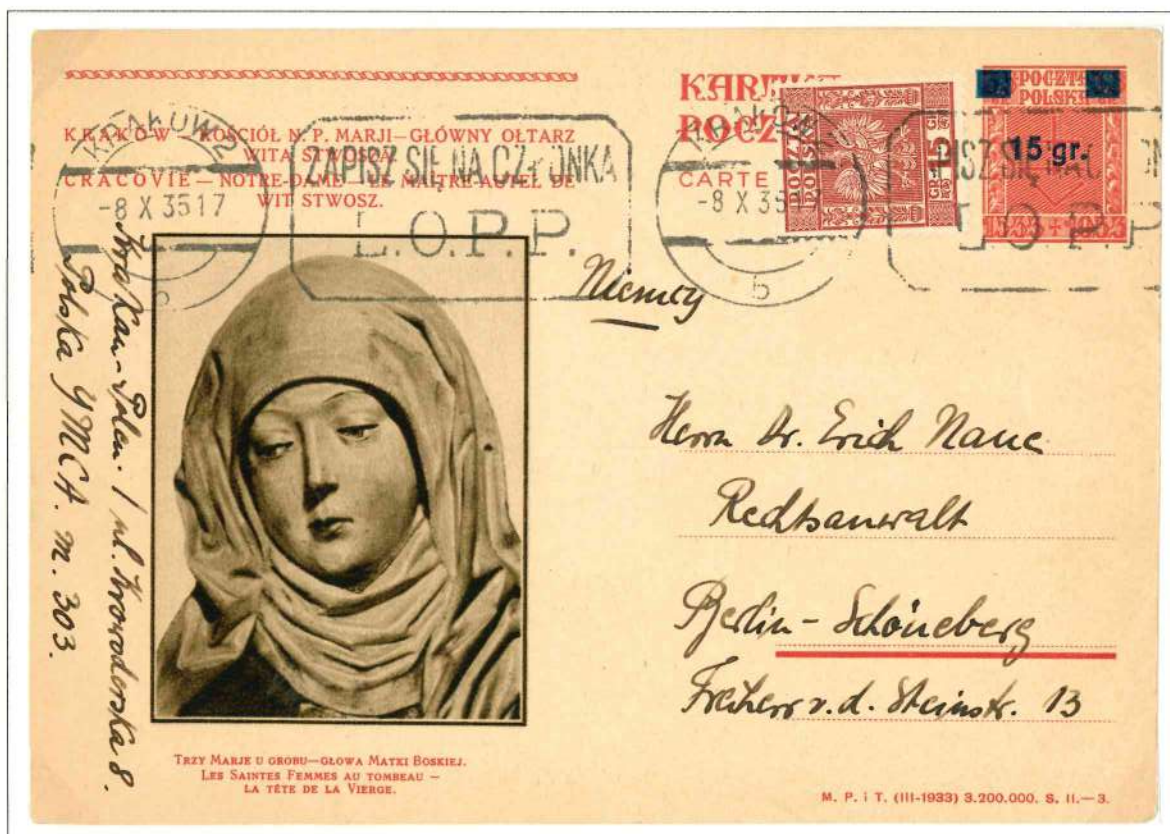 KRAKÓW — KOŚCIÓŁ N. P. MARJI — GŁÓWNY OŁTARZ
WITA STWOSZA.
CRACOVIE — NOTRE-DAME — LE MAÎTRE-AUTEL DE
WIT STWOSZ.
KRAKÓW 2
-8 X 35 17
b
ZAPISZ SIĘ NA CZŁONKA
L.O.P.P.
CARTE
POCZTA
POLSKA
GR 15 GR
KRAKÓW
-8 X 35 17
b
POCZTA
POLSKA
15 gr.
L.O.P.P
Niemcy
Herrn Dr. Erich Naue
Rechtsanwalt
Berlin-Schöneberg
Freiherr v. d. Steinstr. 13
Krakau-Polen / ul. Krowoderska 8.
Polska YMCA. m. 303.
TRZY MARJE U GROBU—GŁOWA MATKI BOSKIEJ.
LES SAINTES FEMMES AU TOMBEAU —
LA TÊTE DE LA VIERGE.
M. P. i T. (III-1933) 3.200.000. S. II.— 3.